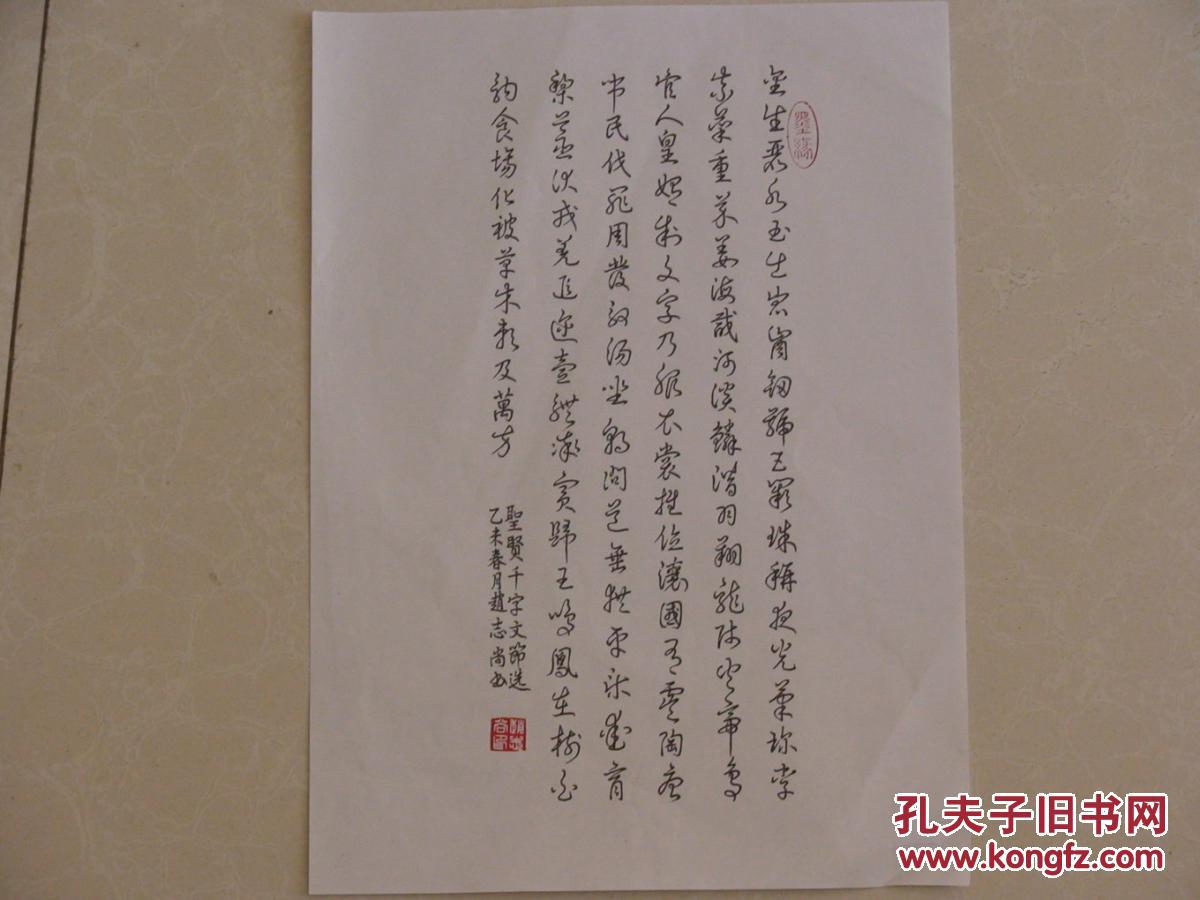 金生麗水玉出崑崗劍號巨闕珠稱夜光菓珍李
柰菜重芥薑海鹹河淡鱗潛羽翔龍師火帝鳥
官人皇始制文字乃服衣裳推位讓國有虞陶唐
弔民伐罪周發殷湯坐朝問道垂拱平章愛育
黎首臣伏戎羌遐邇壹體率賓歸王鳴鳳在樹白
駒食場化被草木賴及萬方
聖賢千字文節选
乙未春月趙志尚书
孔夫子旧书网
www.kongfz.com